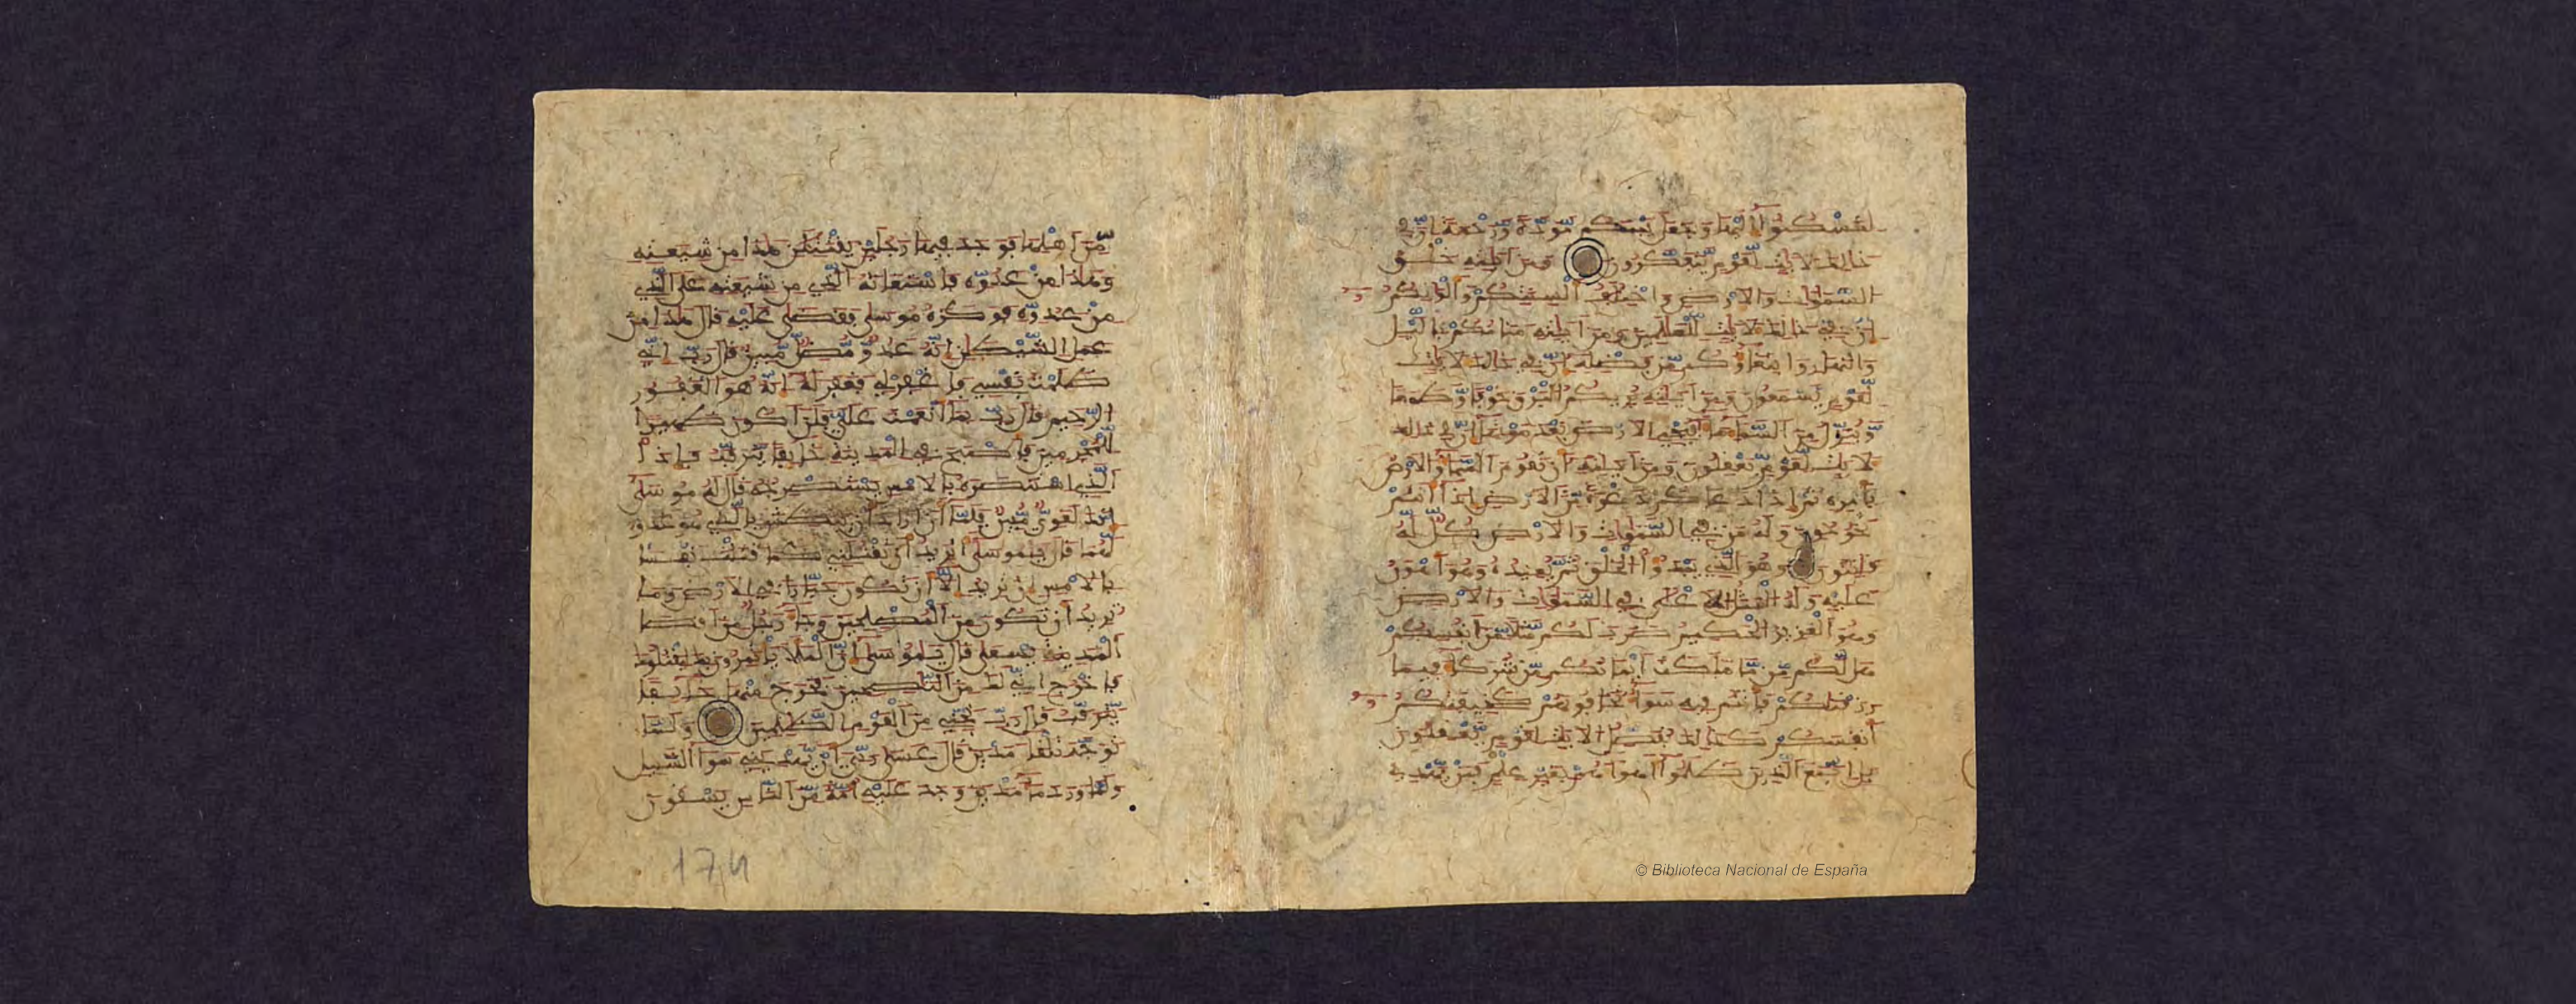 لتسكنوا إليها وجعل بينكم مودة ورحمة إن في
ذلك لآيت لقوم يتفكرون ومن ءايته خلق
السموات والأرض واختلف ألسنتكم وألوانكم
إن في ذلك لآيت للعلمين ومن ءايته منامكم باليل
والنهار وابتغاؤكم من فضله إن في ذلك لآيت
لقوم يسمعون ومن ءايته يريكم البرق خوفا وطمعا
وينزل من السماء ماء فيحي به الأرض بعد موتها إن في ذلك
لآيت لقوم يعقلون ومن ءايته أن تقوم السماء والأرض
بأمره ثم إذا دعاكم دعوة من الأرض إذا أنتم
تخرجون وله من في السموات والأرض كل له
قنتون وهو الذي يبدؤا الخلق ثم يعيده وهو أهون
عليه وله المثل الأعلى في السموات والأرض
وهو العزيز الحكيم ضرب لكم مثلا من أنفسكم
هل لكم من ما ملكت أيمانكم من شركاء فيما
رزقنكم فأنتم فيه سواء تخافونهم كخيفتكم
أنفسكم كذلك نفصل الآيت لقوم يعقلون
بل اتبع الذين ظلموا أهواءهم بغير علم فمن يهدي
من أهلها فوجد فيها رجلين يقتتلن هذا من شيعته
وهذا من عدوه فاستغاثه الذي من شيعته على الذي
من عدوه فوكزه موسى فقضى عليه قال هذا من
عمل الشيطن إنه عدو مضل مبين قال رب إني
ظلمت نفسي فاغفر لي فغفر له إنه هو الغفور
الرحيم قال رب بما أنعمت علي فلن أكون ظهيرا
للمجرمين فأصبح في المدينة خائفا يترقب فإذا
الذي استنصره بالأمس يستصرخه قال له موسى
إنك لغوي مبين فلما أن أراد أن يبطش بالذي هو عدو
لهما قال يموسى أتريد أن تقتلني كما قتلت نفسا
بالأمس إن تريد إلا أن تكون جبارا في الأرض وما
تريد أن تكون من المصلحين وجاء رجل من أقصا
المدينة يسعى قال يموسى إن الملأ يأتمرون بك ليقتلوك
فاخرج إني لك من النصحين فخرج منها خائفا
يترقب قال رب نجني من القوم الظلمين ولما
توجه تلقاء مدين قال عسى ربي أن يهديني سواء السبيل
ولما ورد ماء مدين وجد عليه أمة من الناس يسقون
174
© Biblioteca Nacional de España